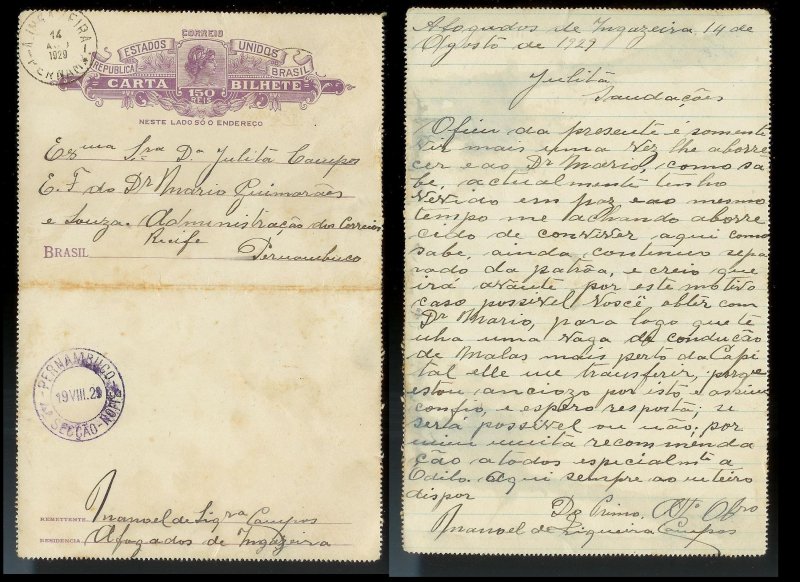 A. INGAZEIRA
14
1929
PERNAM
CORREIO
ESTADOS UNIDOS
REPUBLICA BRASIL
CARTA 150 BILHETE
REIS
NESTE LADO SÓ O ENDEREÇO
Exma Sra Da Julita Campos
E. F. do Dr Mario Guimarães
e Souza. Administração dos Correios
Recife
BRASIL
Pernambuco
PERNAMBUCO
19 VIII. 29
SECÇÃO-NORTE
REMETTENTE Manoel de Siqra Campos
RESIDENCIA Afogados de Ingazeira
Afogados de Ingazeira 14 de
Agosto de 1929
Julitá
Saudações
O fim da presente é somente
vir mais uma vez lhe aborre
cer e ao Dr Mario, como sa
be, actualmente tenho
vivido em paz e ao mesmo
tempo me achando aborre
cido de conviver aqui como
sabe, ainda continuo sepa
rado da patrôa, e creio que
irá avante por este motivo
caso possivel você obter com
Dr Mario, para logo que te
nha uma vaga de condução
de Malas mais perto da Capi
tal elle me transferir, porque
estou anciozo por isto e assim
confio, e espero resposta; si
será possivel ou não; por
mim muita recommenda
ção a todos especialmte a
Odila. Aqui sempre ao inteiro
dispor
Do Primo, Atto Obro
Manoel de Siqueira Campos